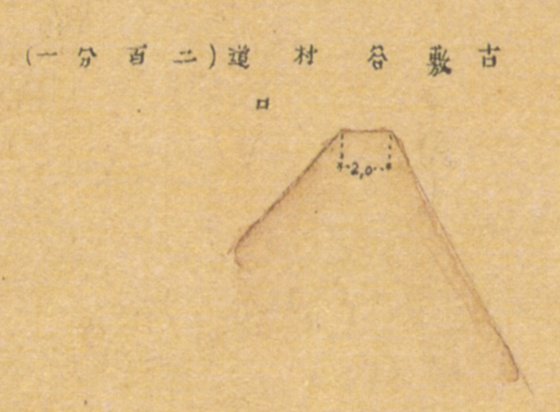 古敷谷村道(二百分一)
ロ
2,0